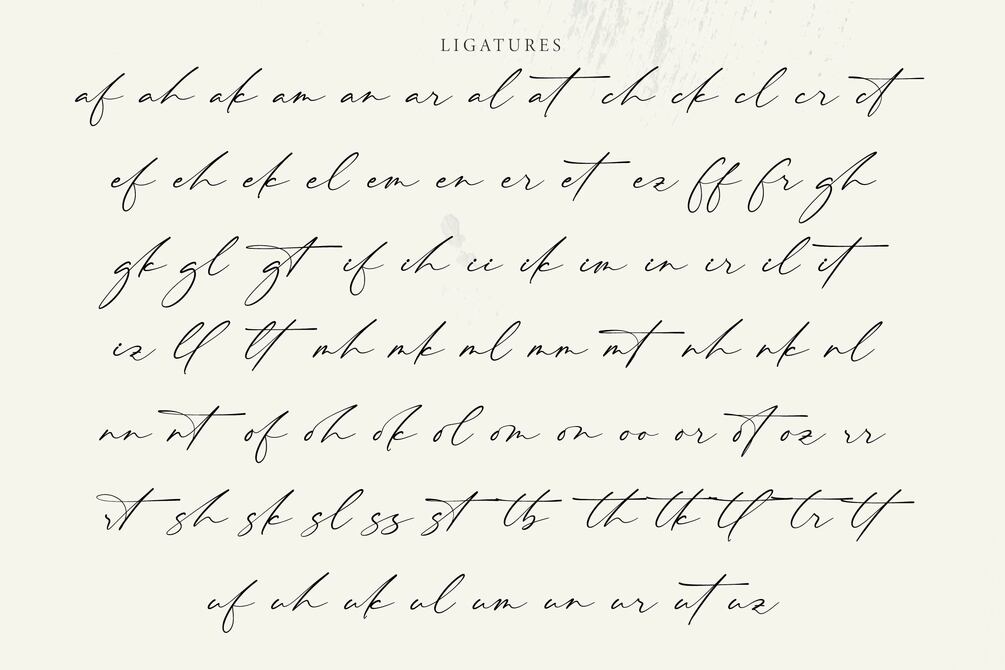 LIGATURES
af ah ak am an ar al at ch ck cl cr ct
ef eh ek el em en er et ez ff fr gh
gk gl gt if ih ii ik im in ir il it
iz ll lt mh mk ml mm mt nh nk nl
nn nt of oh ok ol om on oo or ot oz rr
rt sh sk sl ss st tb th tk tl tr tt
uf uh uk ul um un ur ut uz